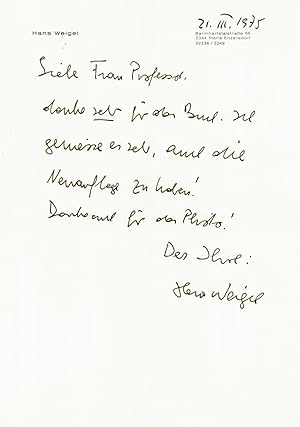 Hans Weigel
21. III. 1975
Barmhartstalstraße 55
2344 Maria Enzersdorf
02236 / 2249
Liebe Frau Professor,
danke sehr für das Buch. Ich
geniesse es sehr, auch die
Neuauflage zu haben!
Danke auch für das Photo!
Der Ihre:
Hans Weigel